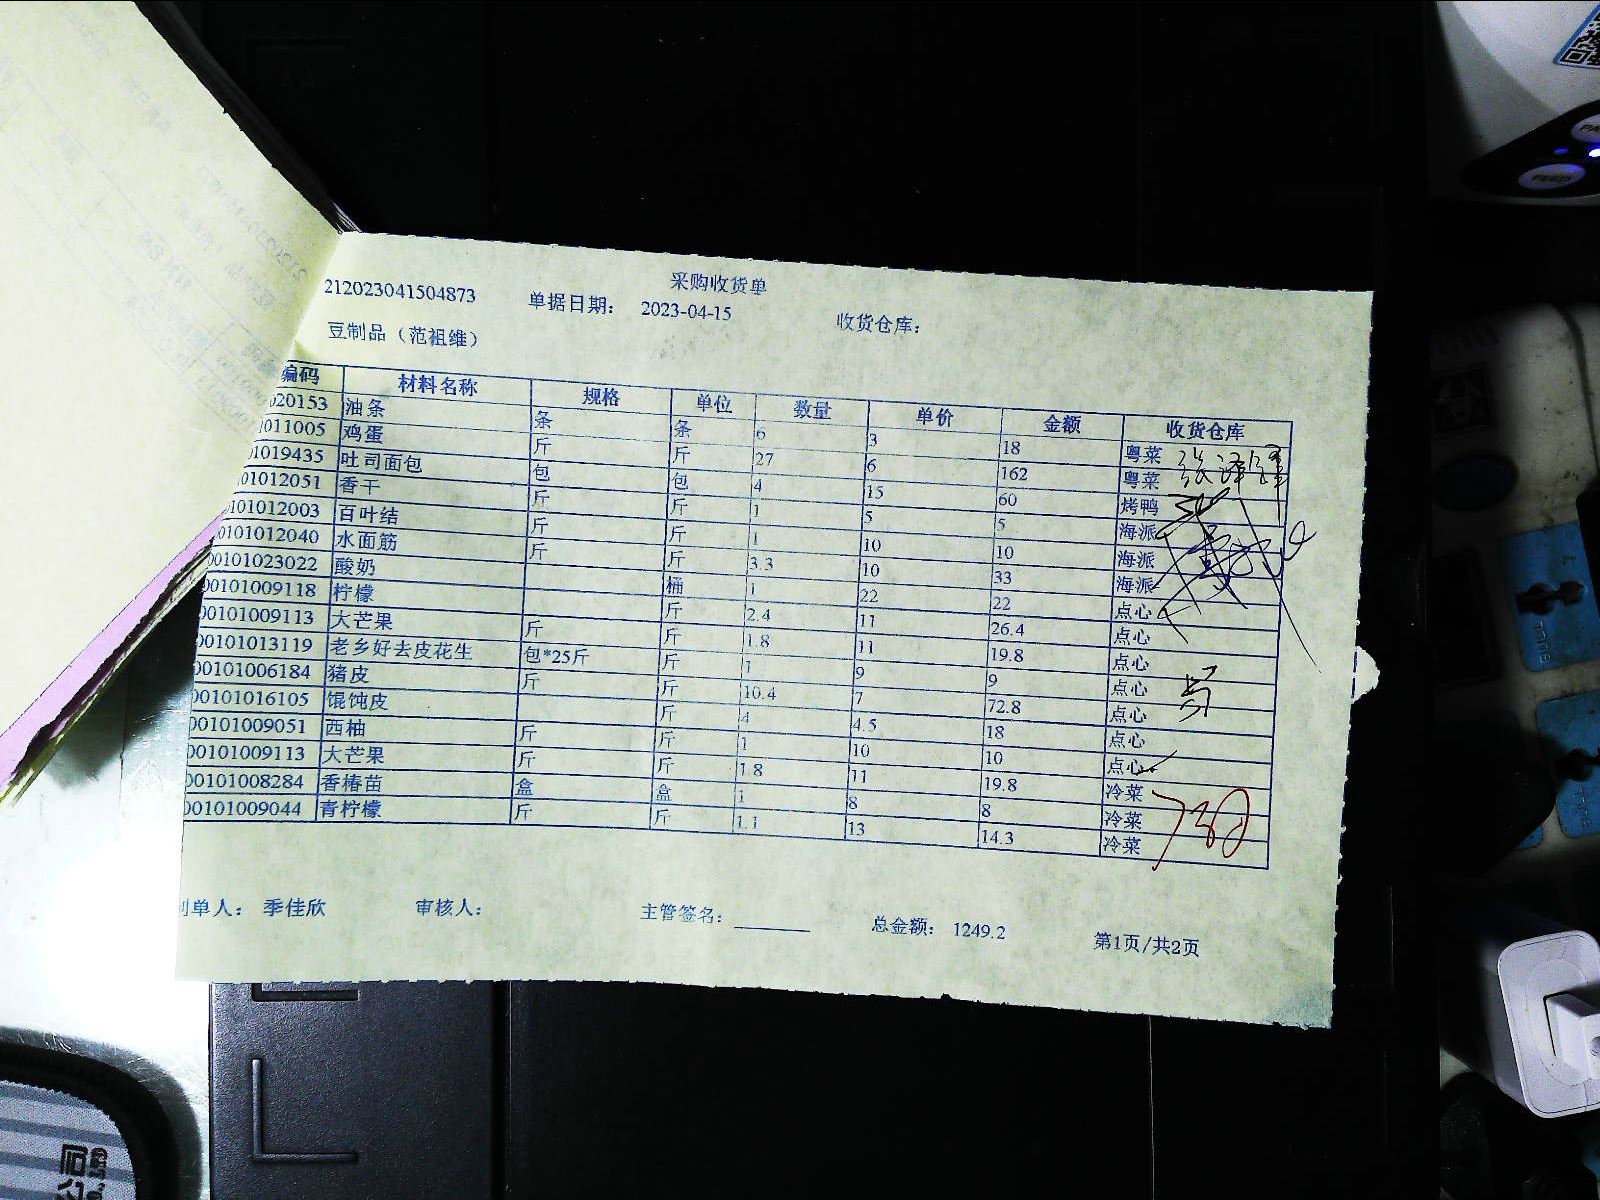 采购收货单
212023041504873 单据日期: 2023-04-15 收货仓库:
豆制品（范祖维）
编码 材料名称 规格 单位 数量 单价 金额 收货仓库
020153 油条 条 条 6 3 18 粤菜
011005 鸡蛋 斤 斤 27 6 162 粤菜
01019435 吐司面包 包 包 4 15 60 烤鸭
01012051 香干 斤 斤 1 5 5 海派
0101012003 百叶结 斤 斤 1 10 10 海派
0101012040 水面筋 斤 斤 3.3 10 33 海派
00101023022 酸奶 桶 1 22 22 点心
00101009118 柠檬 斤 2.4 11 26.4 点心
00101009113 大芒果 斤 斤 1.8 11 19.8 点心
00101013119 老乡好去皮花生 包*25斤 斤 1 9 9 点心
00101006184 猪皮 斤 斤 10.4 7 72.8 点心
00101016105 馄饨皮 斤 4 4.5 18 点心
00101009051 西柚 斤 斤 1 10 10 点心
00101009113 大芒果 斤 斤 1.8 11 19.8 冷菜
00101008284 香椿苗 盒 盒 1 8 8 冷菜
00101009044 青柠檬 斤 斤 1.1 13 14.3 冷菜
制单人: 季佳欣 审核人: 主管签名: 总金额: 1249.2 第1页/共2页
FEED
公司